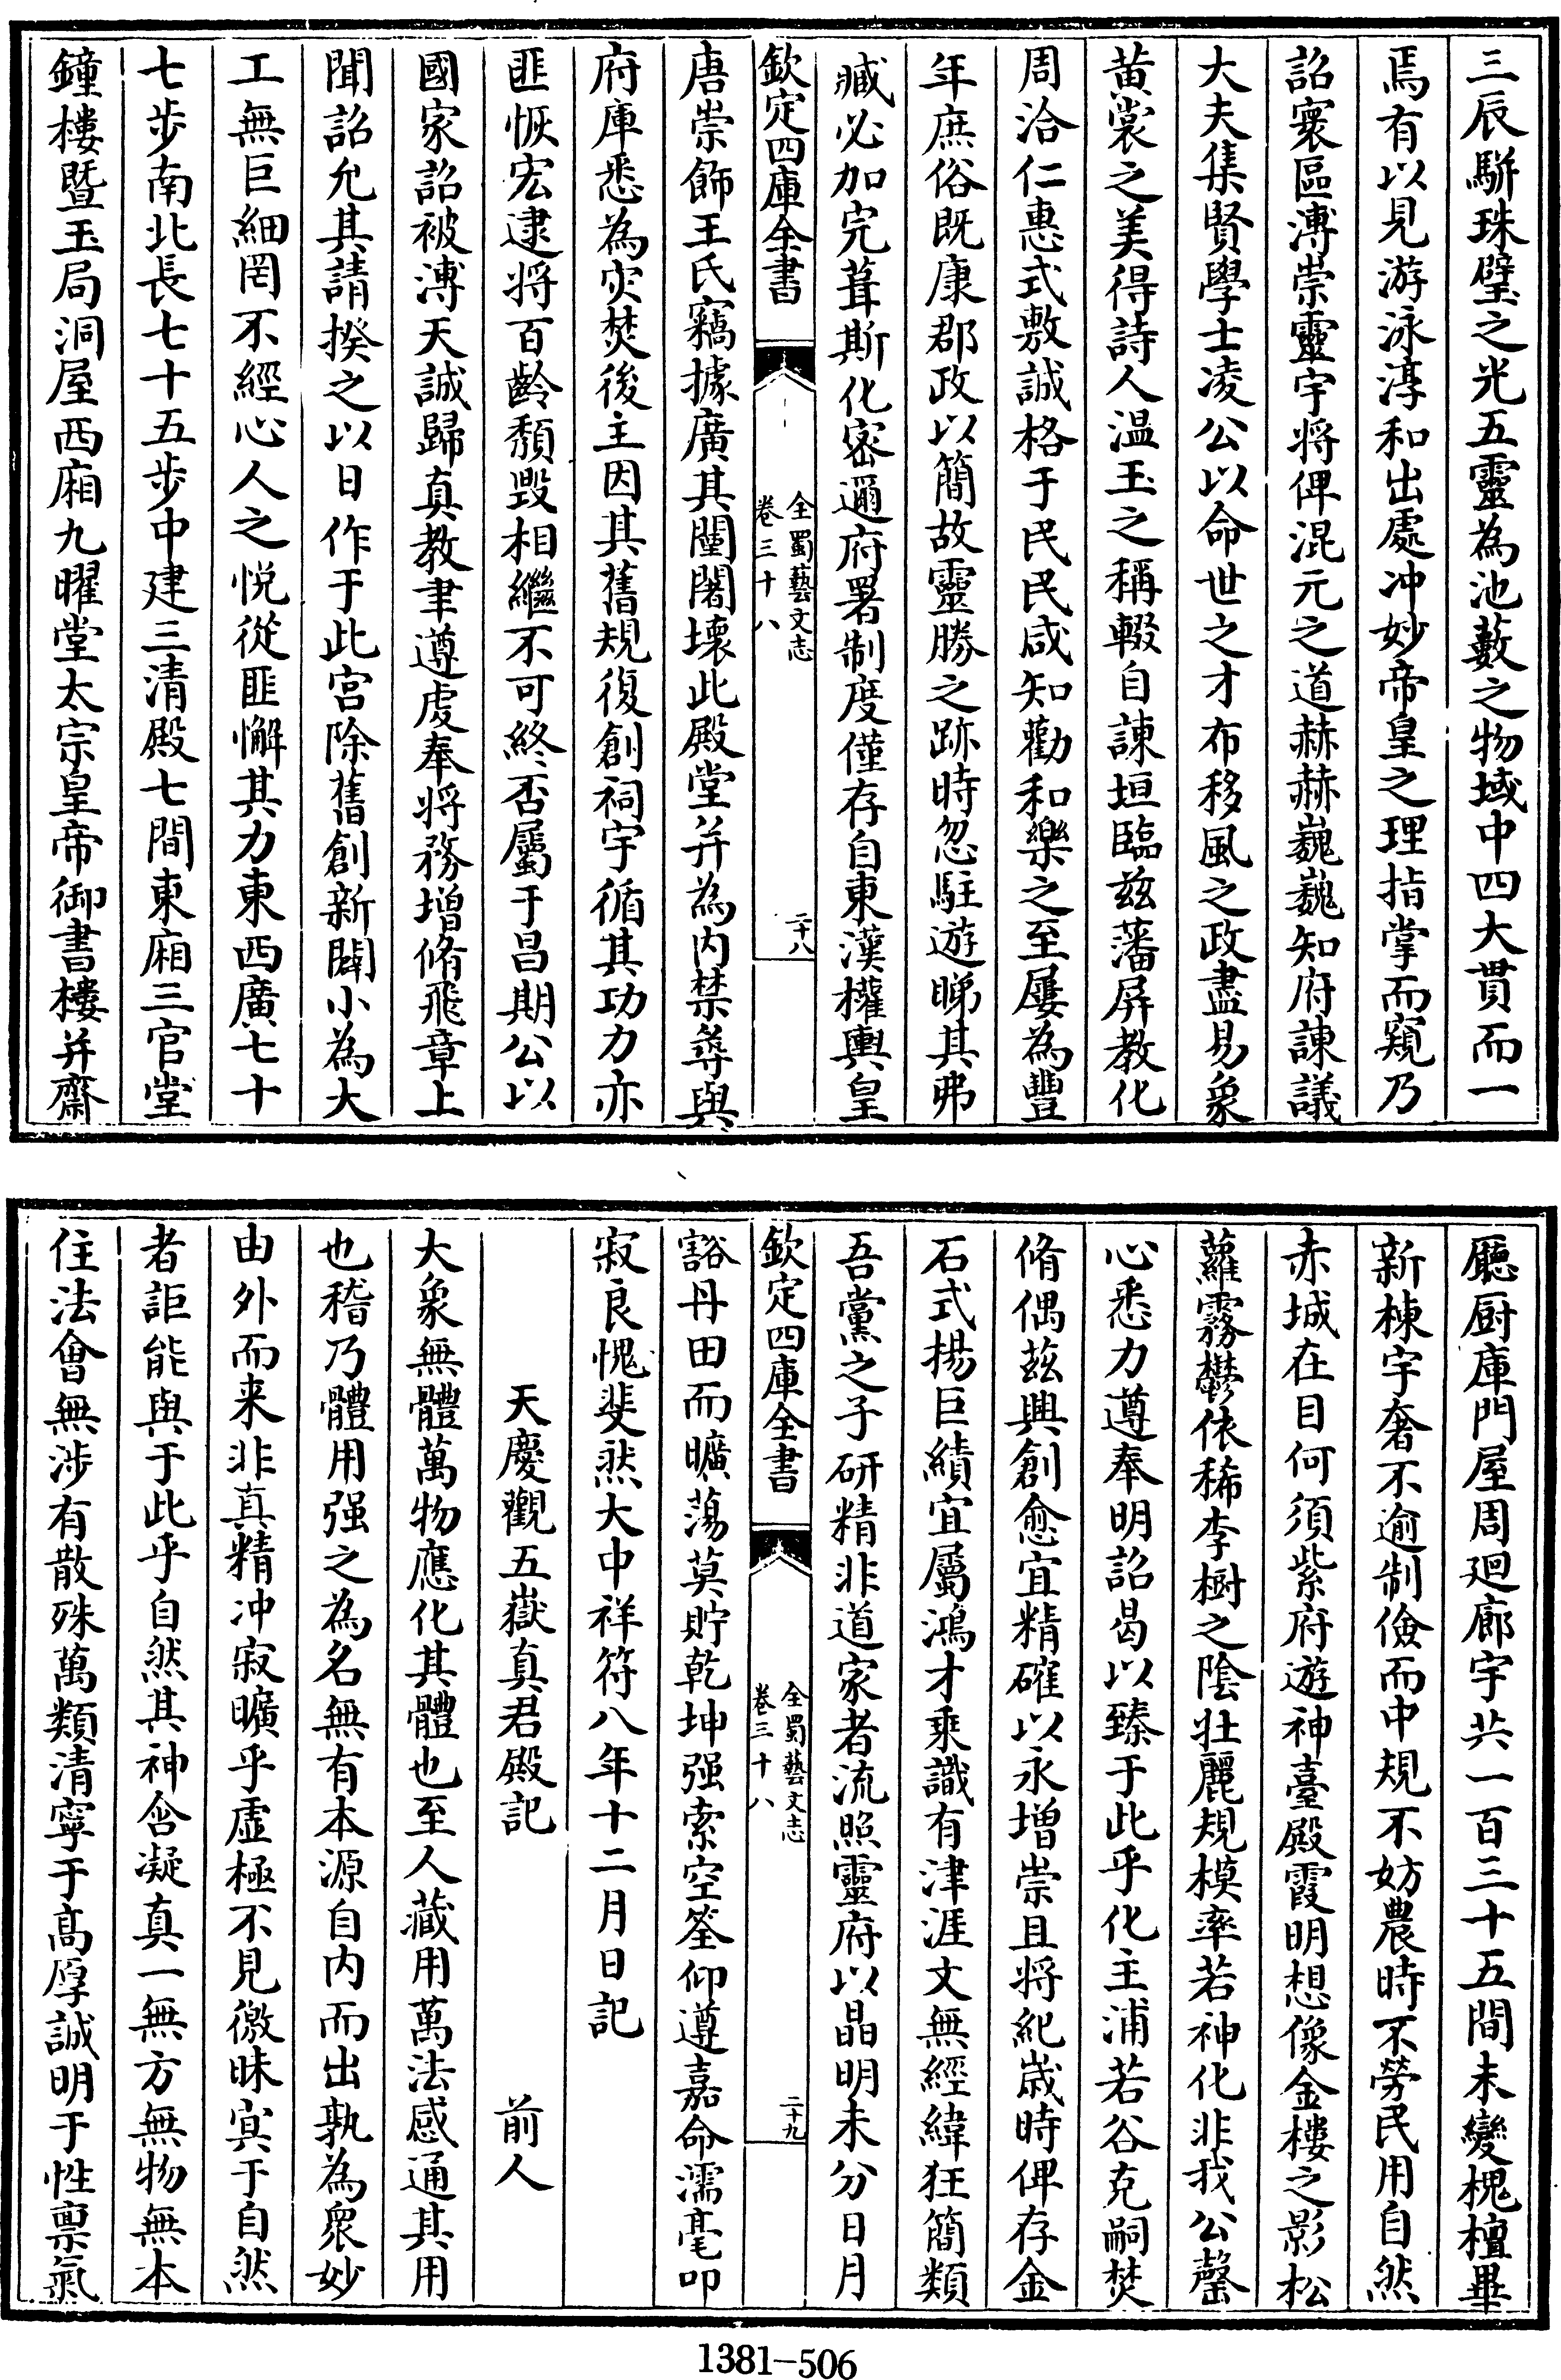 三辰駢珠璧之光五靈為池藪之物域中四大貫而一
焉有以見游泳淳和出處冲妙帝皇之理指掌而窺乃
詔寰區溥崇靈宇将俾混元之道赫赫巍巍知府諫議
大夫集賢學士凌公以命世之才布移風之政盡易象
黄裳之美得詩人温玉之稱輟自諫垣臨兹藩屏教化
周洽仁惠式敷誠格于民民咸知勸和樂之至屢為豐
年庶俗既康郡政以簡故靈勝之跡時忽駐遊睇其弗
臧必加完葺斯化密邇府署制度僅存自東漢權輿皇
欽定四庫全書
全蜀藝文志
卷三十八
二十八
唐崇飾王氏竊據廣其闉闍壞此殿堂并為内禁尋與
府庫悉為灾焚後主因其舊規復創祠宇循其功力亦
匪恢宏逮将百齡頽毁相繼不可終否屬于昌期公以
國家詔被溥天誠歸真教聿遵虔奉将務增脩飛章上
聞詔允其請揆之以日作于此宫除舊創新闢小為大
工無巨細罔不經心人之悦從匪懈其力東西廣七十
七步南北長七十五步中建三清殿七間東廂三官堂
鐘樓暨玉局洞屋西廂九曜堂太宗皇帝御書樓并齋
廳厨庫門屋周廻廊宇共一百三十五間未變槐檀畢
新棟宇奢不逾制儉而中規不妨農時不勞民用自然
赤城在目何須紫府遊神臺殿霞明想像金樓之影松
蘿霧鬱依稀李樹之陰壯麗規模率若神化非我公罄
心悉力遵奉明詔曷以臻于此乎化主浦若谷克嗣焚
脩偶兹興創愈宜精確以永增崇且将紀歲時俾存金
石式揚巨績宜屬鴻才乘識有津涯文無經緯狂簡類
吾黨之子研精非道家者流照靈府以晶明未分日月
欽定四庫全書
全蜀藝文志
卷三十八
二十九
豁丹田而曠蕩莫貯乾坤强索空筌仰遵嘉命濡毫叩
寂良愧斐然大中祥符八年十二月日記
天慶觀五嶽真君殿記　前人
大象無體萬物應化其體也至人藏用萬法感通其用
也稽乃體用强之為名無有本源自内而出孰為衆妙
由外而来非真精冲寂曠乎虚極不見徼昧寅于自然
者詎能與于此乎自然其神含凝真一無方無物無本
住法會無涉有散殊萬類清寧于高厚誠明于性禀氣
1381-506